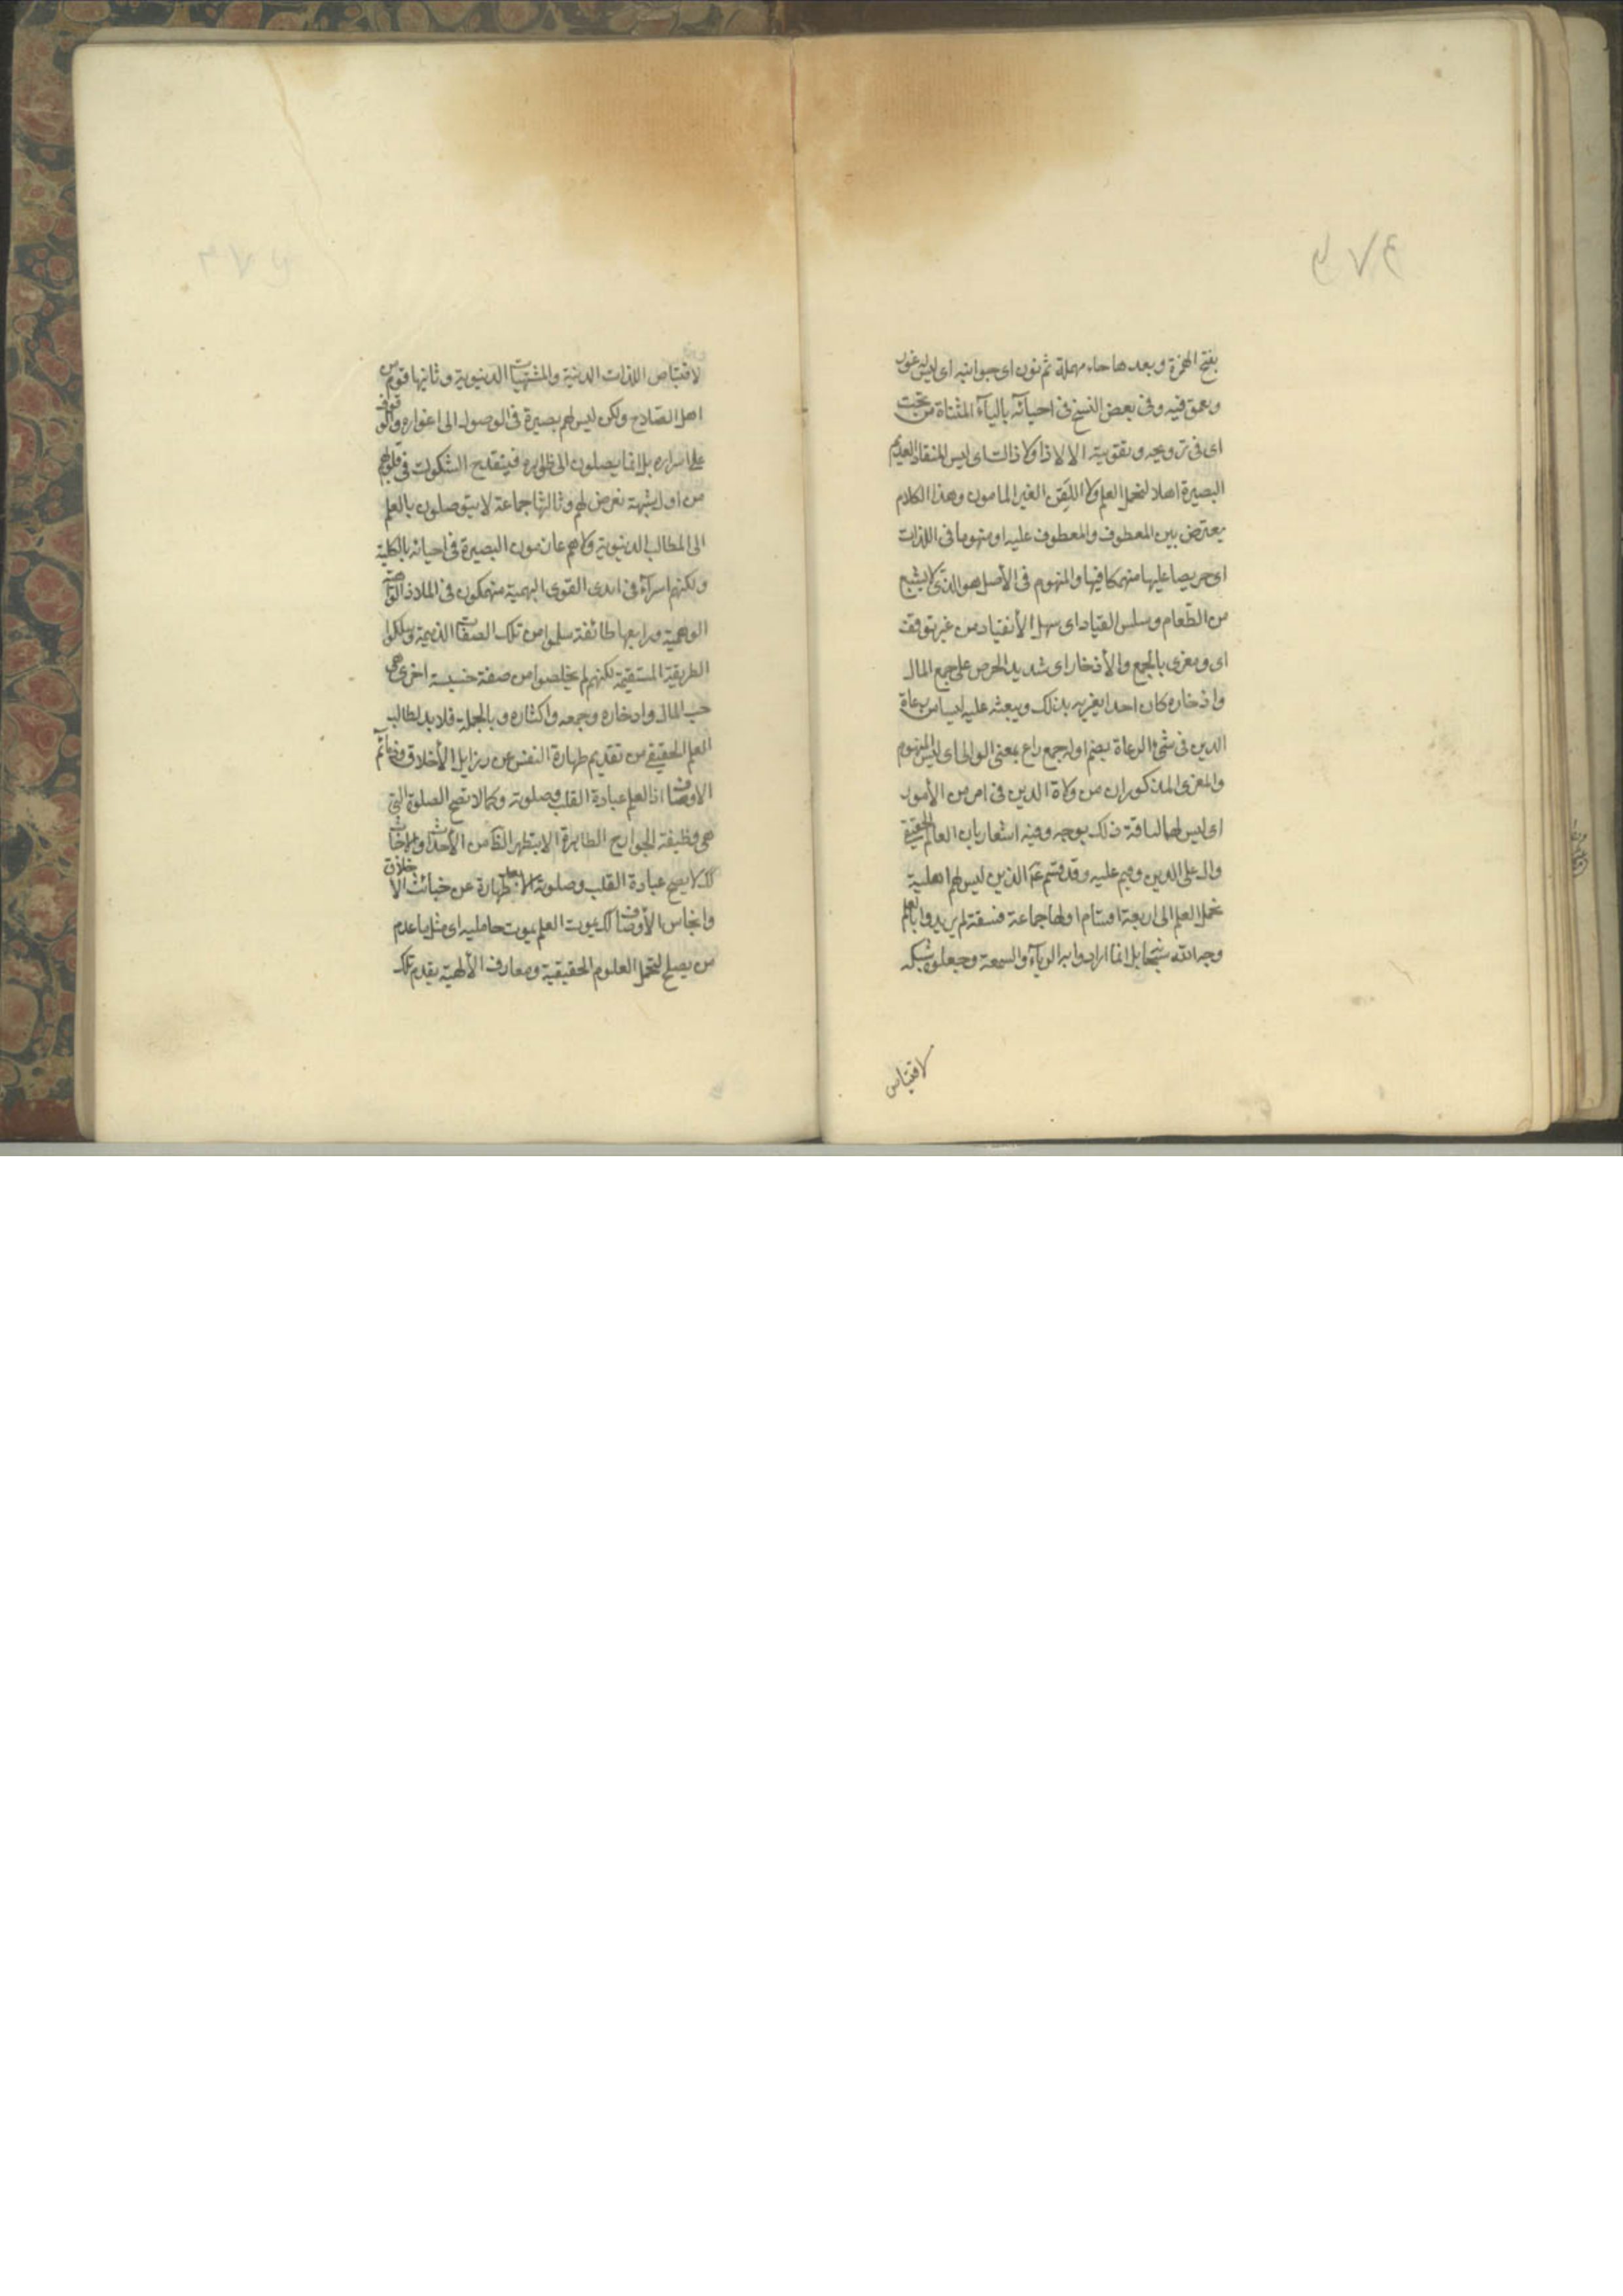 بفتح الهمزة وبعدها حاء مهملة ثم نون اى جوانبه اى ليس له غور
وتعمق فيه وفى بعض النسخ فى احيائه بالياء المثناة من تحت
اى فى ترويجه وتقويته الا لا ذا ولا ذاك اى ليس المنقاد العديم
البصيرة اهلا لتحمل العلم ولا اللقن الغير المامون وهذا الكلام
معترض بين المعطوف والمعطوف عليه او منهوما فى اللذات
اى حريصا عليها منهمكا فيها والمنهوم فى الأصل هو الذى لا يشبع
من الطعام وسلس القياد اى سهل الأنقياد من غير توقف
اى ومغرى بالجمع والأذخار اى شديد الحرص على جمع المال
واذخاره كان احدا يغريه بذلك ويبعثه عليه ليسا من رعاة
الدين فى شئ الرعاة بضم اوله جمع راع بمعنى الوالى اى ليس المنهوم
والمغرى المذكوران من ولاة الدين فى امر من الأمور
اى ليس لهما لياقة ذلك بوجه وفيه اشعار بان العالم الحقيقى
وال على الدين وقيم عليه وقد قسم ع الذين ليس لهم اهلية
تحمل العلم الى اربعة اقسام اولها جماعة فسقة لم يريدوا بالعلم
وجه الله سبحانه بل انما ارادوا به الرياء والسمعة وجعلوه شبكة
لاقتناص
لاقتناص اللذات الدنية والمشتهيات الدنيوية وثانيها قوم من
اهل الصلاح ولكن ليس لهم بصيرة فى الوصول الى اغواره والوقوف
على اسراره بل انما يصلون الى ظواهره فينقدح الشكوك فى قلوبهم
من اول شبهة تعرض لهم وثالثها جماعة لا يتوصلون بالعلم
الى المطالب الدنيوية ولا هم عادمون البصيرة فى احيائه بالكلية
ولكنهم اسراء فى ايدى القوى البهمية منهمكون فى الملاذ الواهية
الوهمية ورابعها طائفة سلموا من تلك الصفات الذميمة وسلكوا
الطريقة المستقيمة لكنهم لم يخلصوا من صفة خسيسة اخرى هى
حب المال وادخاره وجمعه واكثاره وبالجملة فلا بد لطالب
العلم الحقيقى من تقديم طهارة النفس عن رزايل الأخلاق وذمائم
الاوصاف اذ العلم عبادة القلب وصلوته وكما لا تصح الصلوة التى
هى وظيفة الجوارح الظاهرة الا بتطهر الظا من الأحداث والأخباث
كك لا يصح عبادة القلب وصلوته الا بعد طهارة عن خبائث الاخلاق
وانجاس الأوصاف كك يموت العلم بموت حامليه اى مثل ما عدم
من يصلح لتحمل العلوم الحقيقية ومعارف الألهية بقدم تلك